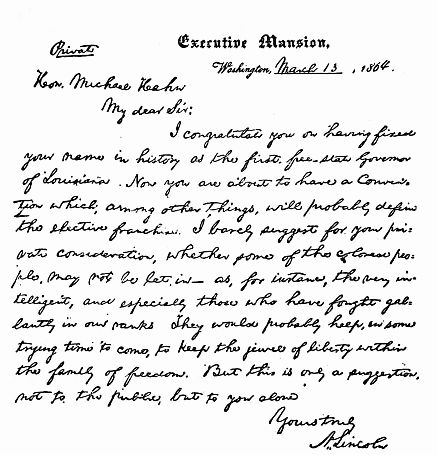 Private
Executive Mansion,
Washington, March 13, 1864.
Hon. Michael Hahn
My dear Sir:
I congratulate you on having fixed
your name in history as the first free-state Governor
of Louisiana. Now you are about to have a Conven-
tion which, among other things, will probably define
the elective franchise. I barely suggest for your pri-
vate consideration, whether some of the colored peo-
ple may not be let in— as, for instance, the very in-
telligent, and especially those who have fought gal-
lantly in our ranks. They would probably help, in some
trying time to come, to keep the jewel of liberty within
the family of freedom. But this is only a suggestion,
not to the public, but to you alone
Yours truly
A. Lincoln